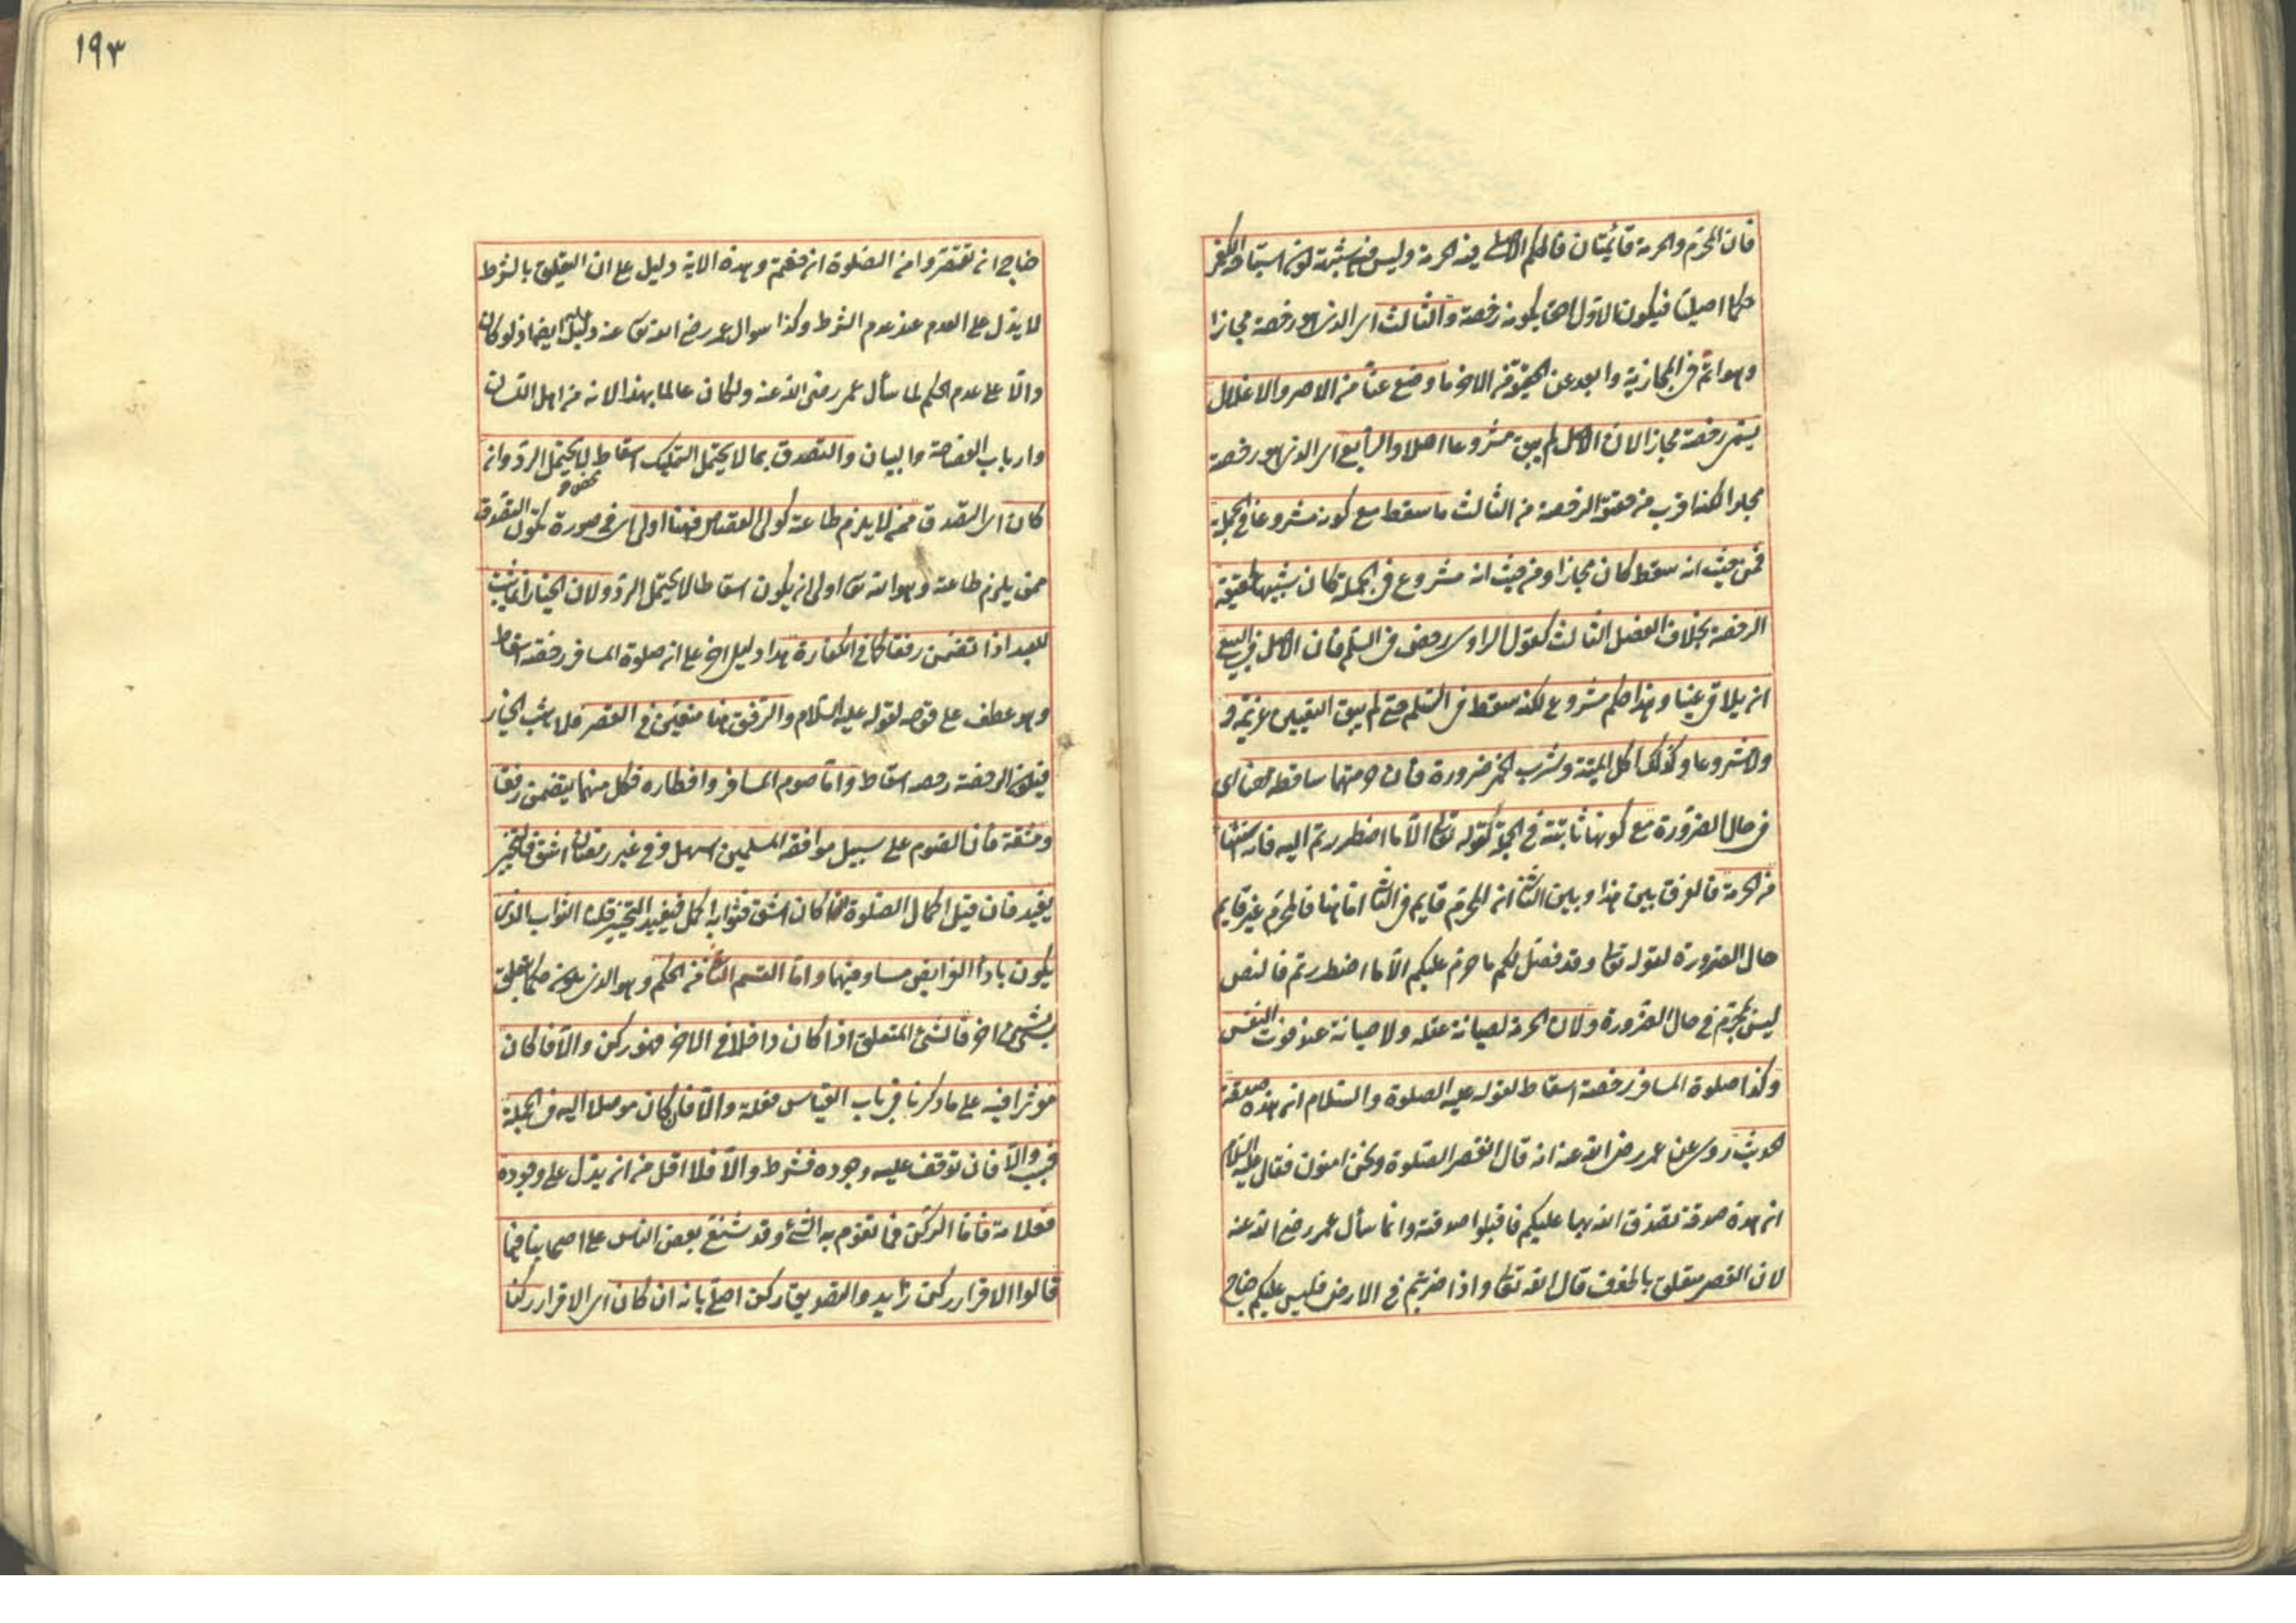 فان المحرم والحرمة قائمتان فالحكم الاصلى فيه الحرمة وليس فيه شبهة كون استباحة الكفر
حكما اصليا فيكون الاول احق بكونه رخصة والثالث اى الذى هو رخصة مجازا
وهو اتم فى المجازية وابعد عن الحقيقة من الاخر ما وضع عنا من الاصر والاغلال
يسمى رخصة مجازا لان الاصل لم يبق مشروعا اصلا والرابع اى الذى هو رخصة
مجازا لكنه اقرب من حقيقة الرخصة من الثالث ما سقط مع كونه مشروعا فى الجملة
فمن حيث انه سقط كان مجازا ومن حيث انه مشروع فى الجملة كان شبيها بحقيقة
الرخصة بخلاف الفصل الثالث كقول الراوى رخص فى السلم فان الاصل فى البيع
ان يلاقى عينا وهذا حكم مشروع لكنه سقط فى السلم حتى لم يبق التعيين عزيمة و
ولا مشروعا وكذلك اكل الميتة وشرب الخمر ضرورة فان حرمتهما ساقطة هنا اى
فى حال الضرورة مع كونها ثابتة فى الجملة كقوله تعالى الا ما اضطررتم اليه فانه استثناء
من الحرمة فالفرق بين هذا وبين الثانى ان المحرم قايم فى الثانى اما هنا فالمحرم غير قايم
حال الضرورة لقوله تعالى وقد فصل لكم ما حرم عليكم الا ما اضطررتم فالنص
ليس بمحرم فى حال الضرورة ولان الحرمة لصيانة عقله ولا صيانة عند فوت النفس
وكذا صلوة المسافر رخصة اسقاط لقوله عليه الصلوة والسلام ان هذه صدقة
الحديث روى عن عمر رضى الله عنه انه قال انقصر الصلوة ونحن امنون فقال عليه السلام
ان هذه صدقة تصدق الله بها عليكم فاقبلوا صدقته وانما سأل عمر رضى الله عنه
لان القصر متعلق بالخوف قال الله تعالى واذا ضربتم فى الارض فليس عليكم جناح
١٩٣
جناح ان تقصروا من الصلوة ان خفتم وهذه الاية دليل على ان التعليق بالشرط
لا يدل على العدم عند عدم الشرط وكذا سوال عمر رضى الله تعالى عنه دليل عليه ايضا اذ لو كان
دالا على عدم الحكم لما سأل عمر رضى الله عنه ولكان عالما بهذا لانه من اهل اللسان
وارباب الفصاحة والبيان والتصدق بما لا يحتمل التمليك اسقاط محض لا يحتمل الرد وان
كان اى التصدق ممن لا يلزم طاعته كولى القصاص فههنا اولى اى فى صورة يكون التصدق
ممن يلزم طاعته وهو الله تعالى اولى ان يكون اسقاطا لا يحتمل الرد ولان الخيار انما يثبت
للعبد اذا تضمن رفقا كما فى الكفارة هذا دليل اخر على ان صلوة المسافر رخصة اسقاط
وهو عطف على قوله لقوله عليه السلام والرفق هنا متعين فى القصر فلا يثبت الخيار
فيكون الرخصة رخصة اسقاط واما صوم المسافر وافطاره فكل منهما يتضمن رفقا
ومشقة فان الصوم على سبيل موافقة المسلمين اسهل وفى غير رمضان اشق فالتخيير
يفيد فان قيل اكمال الصلوة كان اشق فثوابه اكمل فيفيد التخيير قلنا الثواب الذى
يكون باداء الفرايض مساو فيهما واما القسم الثانى من الحكم وهو الذى يكون حكما بتعلق
شيئ باخر فالشئ المتعلق اذا كان داخلا فى الاخر فهو ركن والا فان كان
موثرا فيه على ما ذكرنا فى باب القياس فعلة والا فان كان موصلا اليه فى الجملة
فسبب والا فان توقف عليه وجوده فشرط والا فلا اقل من ان يدل على وجوده
فعلامة فاما الركن فما تقوم به الشئ وقد شنع بعض الناس على اصحابنا فيما
قالوا الاقرار ركن زايد والتصديق ركن اصلى بانه ان كان اى الاقرار ركنا